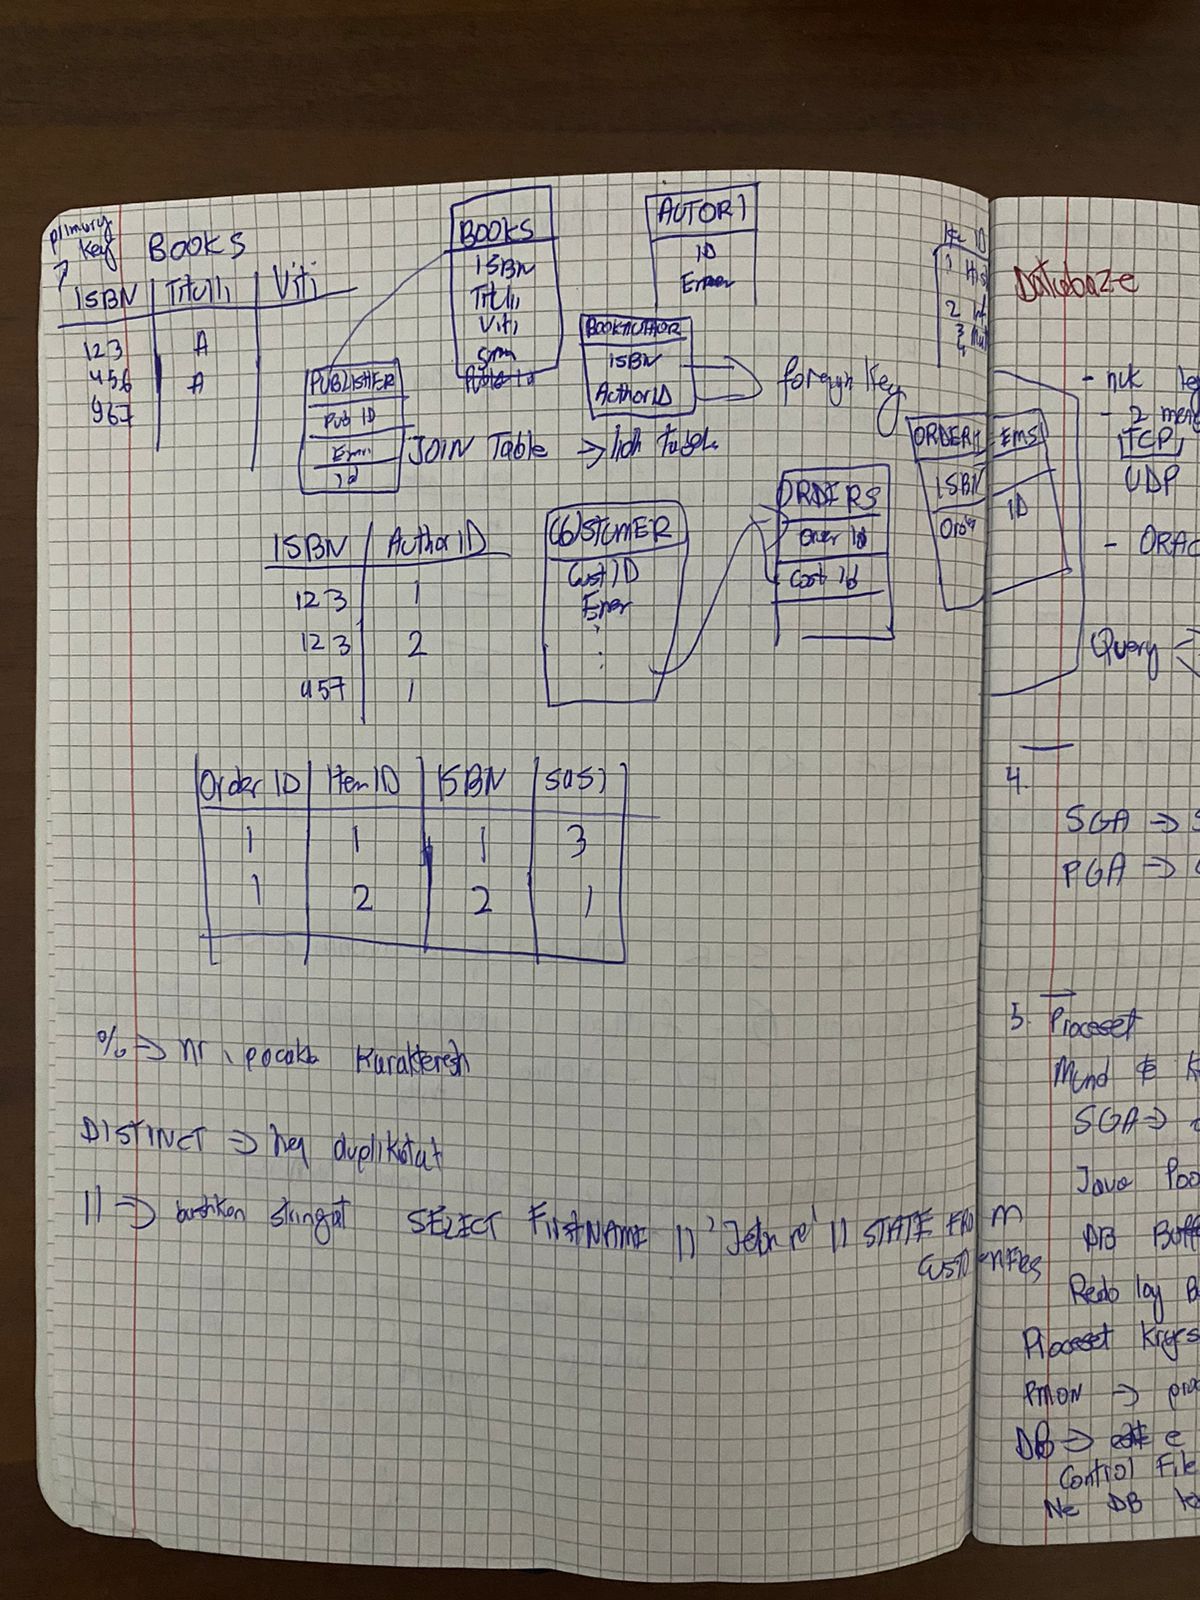 primary
key
BOOKS
ISBN Titulli Viti
123 A
456 A
967
BOOKS
ISBN
Titulli
Viti
AUTORI
ID
Emer
BOOKAUTHOR
ISBN
AuthorID
foreign key
PUBLISHER
Pub ID
Emri
JOIN Table → lidh tabele
ISBN AuthorID
123 1
123 2
457 1
CUSTUMER
Cust ID
Emer
ORDERS
Order Id
Cost Id
ORDERITEMS
ISBN
Order
ID
Order ID Item ID ISBN sasi
1 1 1 3
1 2 2 1
% → nr. pacaktu karakteresh
DISTINCT → heq duplikatat
|| → bashkon stringat SELECT FirstNAME || 'Jeton ne' || STATE FROM
CUSTOMERS
ID
1
2
3
4
Databaze
- nuk
- 2
TCP
UDP
- ORAC
Query
4.
SGA →
PGA →
5. Proceset
Mund
SGA →
Java Poo
DB Buff
Redo log B
Proceset kryes
PMON → pro
DB → e
Control File
Ne DB